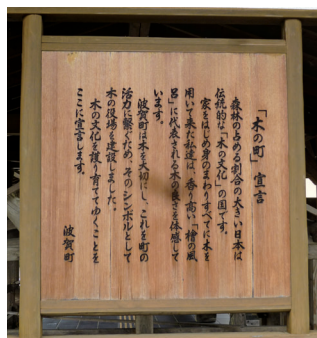 「木の町」宣言
森林の占める割合の大きい日本は
伝統的な「木の文化」の国です。
家をはじめ身のまわりすべてに木を
用いて来た私達は、香り高い「檜の風
呂」に代表される木の良さを体感して
います。
波賀町は木を大切にし、これを町の
活力に繋ぐため、そのシンボルとして
木の役場を建設しました。
木の文化を護り育ててゆくことを
ここに宣言します。
波賀町